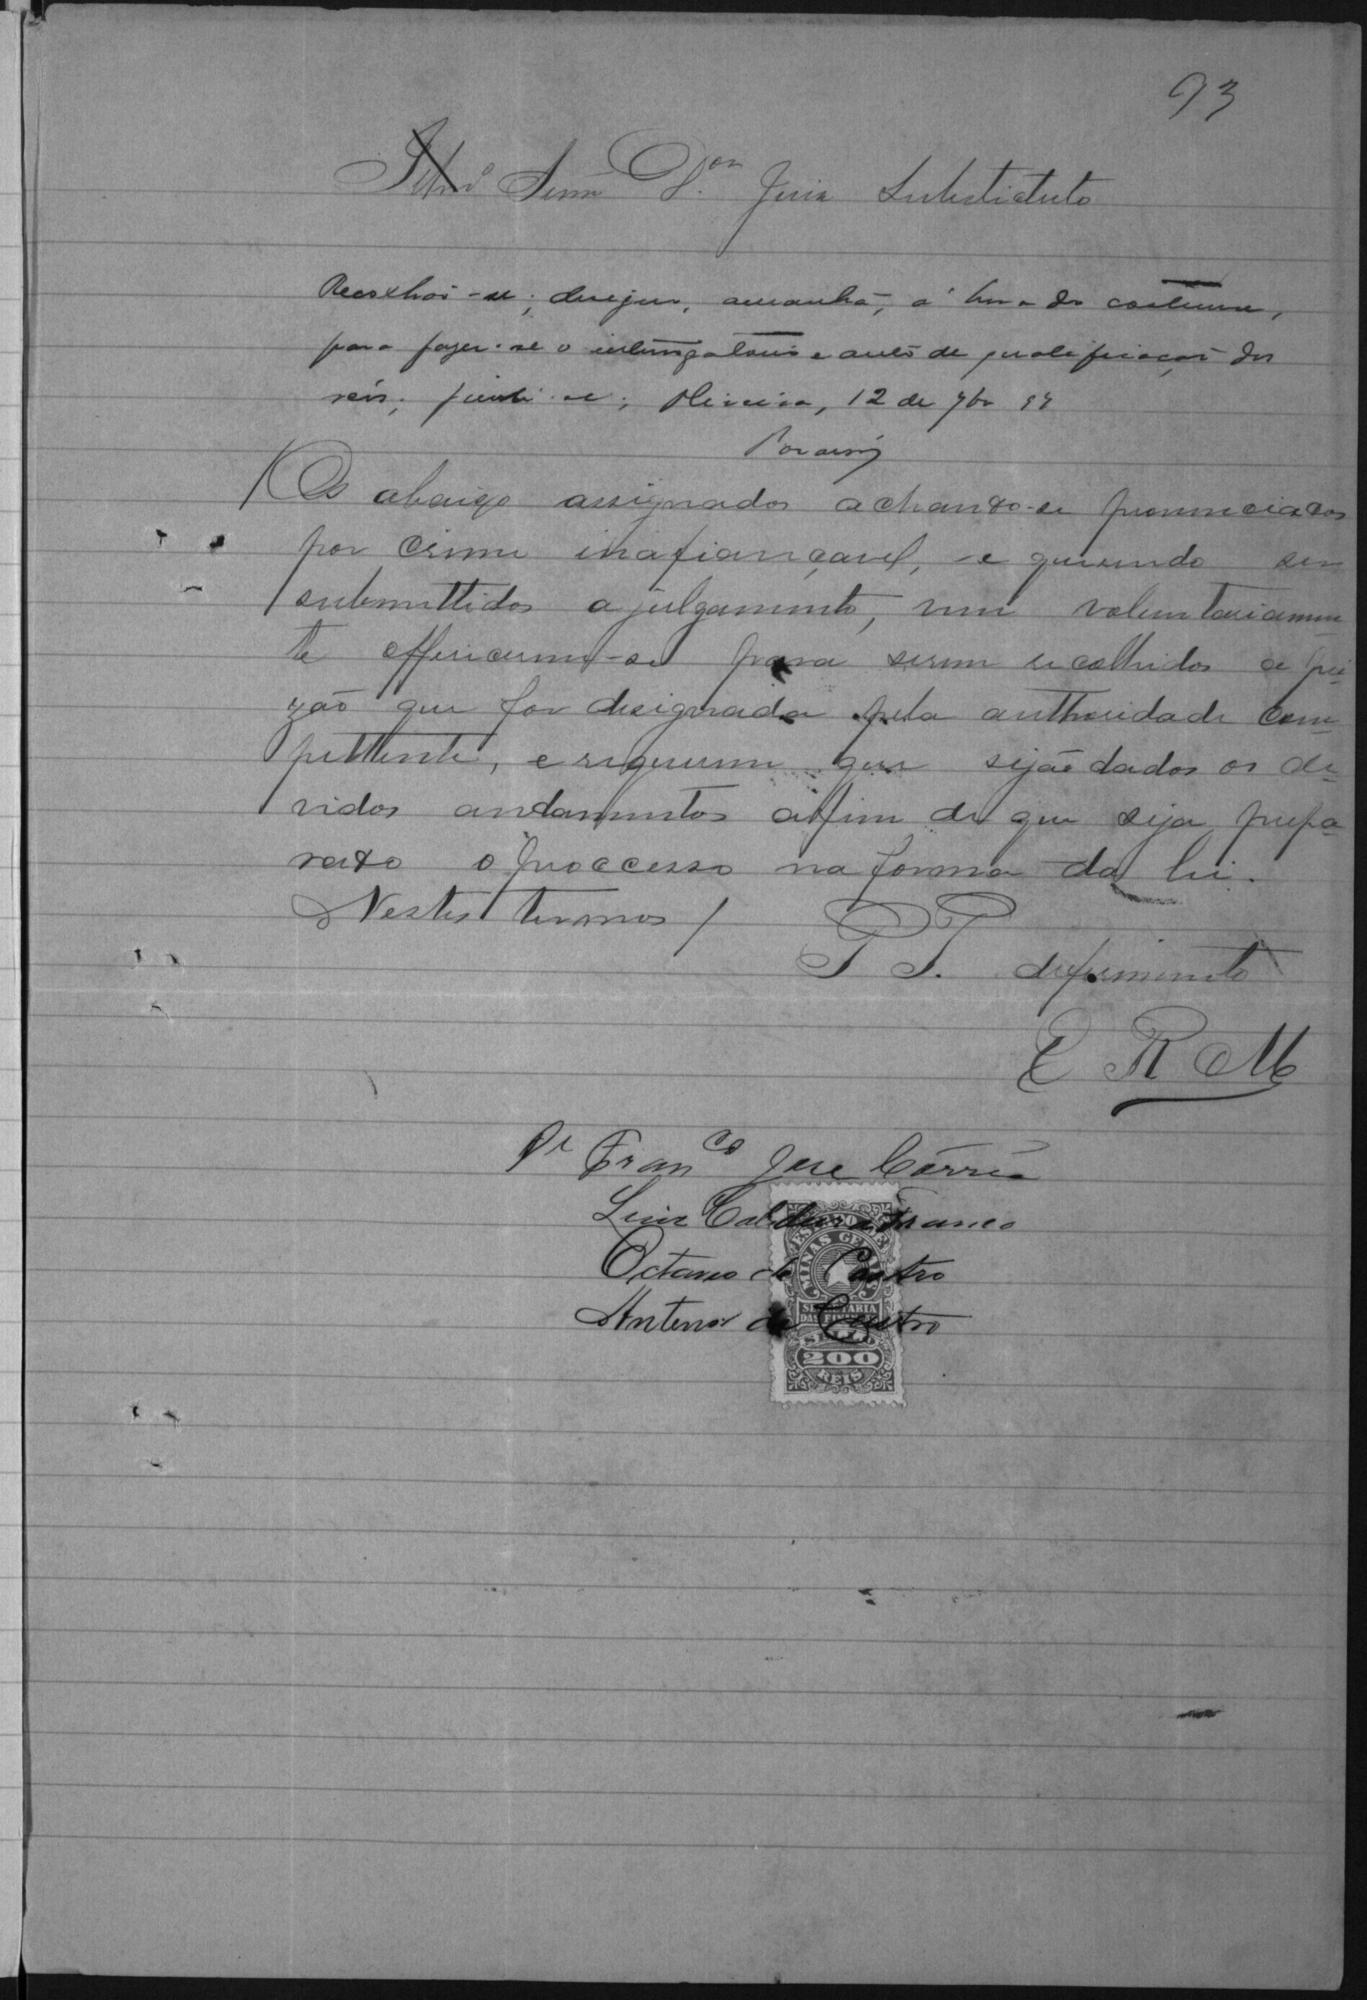 93
Illmo Senr Dor Juiz Substituto
Recolhão-se; designo, amanhã, á hora do costume,
para fazer-se o interrogatorio e auto de qualificação dos
réos; junte-se; Oliveira, 12 de 7bro 99
Os abaixo assignados achando-se pronunciados
por crime inafiançavel, e querendo ser
submettidos a julgamento, vem voluntariamen-
te offerecerem-se para serem recolhidos a pri-
zão que for designada pela authoridade com-
pettente, e requerem que sejão dados os de-
vidos andamentos afim de que seja prepa-
rado o proccesso na forma da lei.
Nestes termos
P P. deferimento
E R M
Dr Franco Jose Corrêa
Luiz Caldeira Franco
Octavio de Castro
Antenor de Castro
ESTADO DE
MINAS GERAES
SECRETARIA
DAS FINANÇAS
SELLO
200
REIS